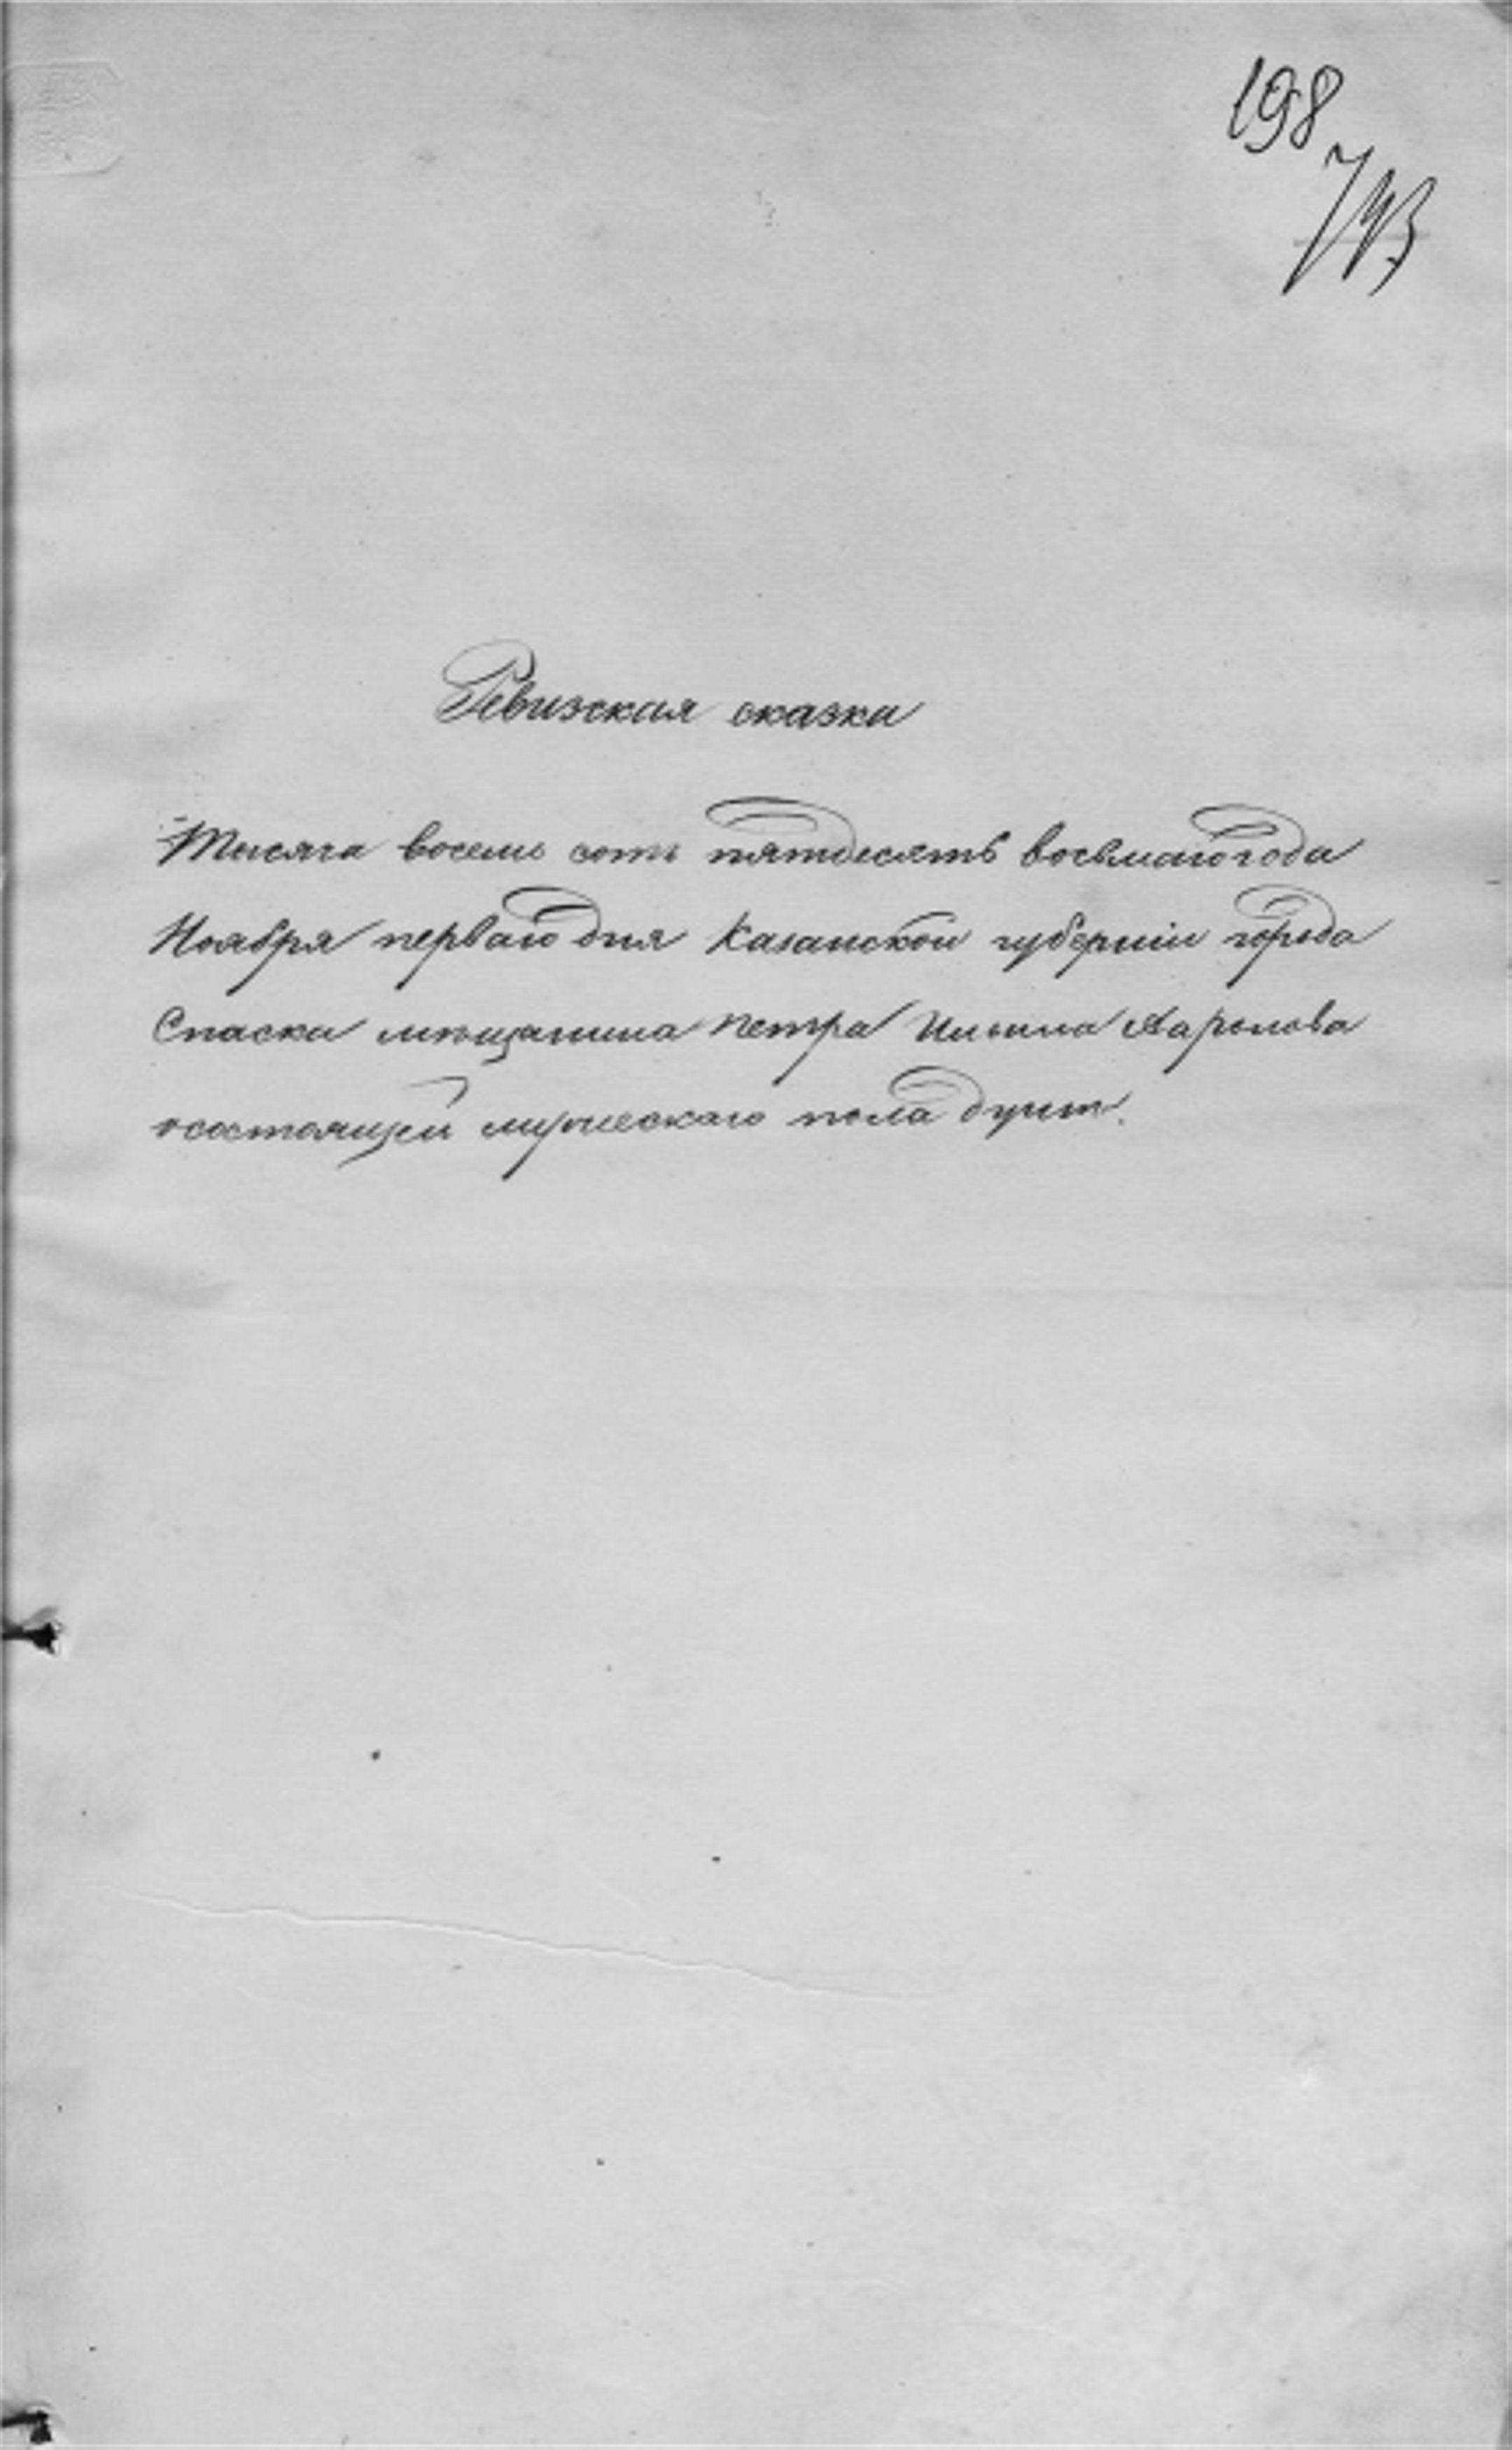 198
743
Ревизская сказка
Тысяча восемь сотъ пятдесятъ восьмаго года
Ноября перваго дня Казанской губерніи города
Спаска мѣщанина Петра Ильина
о состоящей мужескаго пола душъ.